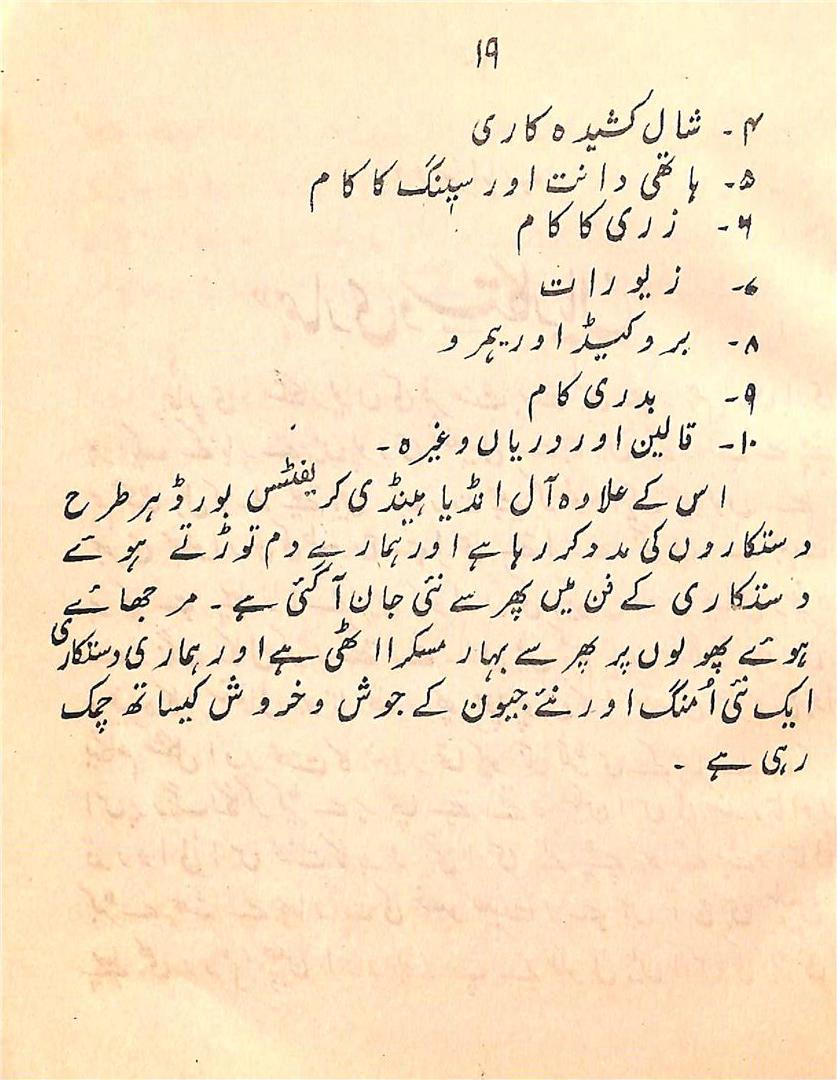 ۱۹
۴ - شال کشیدہ کاری
۵ - ہاتھی دانت اور سینگ کا کام
۶ - زری کا کام
۷ - زیورات
۸ - بروکیڈ اور ہمرو
۹ - بدری کام
۱۰ - قالین اور دریاں وغیرہ -
اس کے علاوہ آل انڈیا ہینڈی کریفٹس بورڈ ہر طرح
دستکاروں کی مدد کر رہا ہے اور ہمارے دم توڑتے ہوئے
دستکاری کے فن میں پھر سے نئی جان آ گئی ہے - مرجھائے
ہوئے پھولوں پر پھر سے بہار مسکرا اٹھی ہے اور ہماری دستکاری
ایک نئی اُمنگ اور نئے جیون کے جوش و خروش کیساتھ چمک
رہی ہے -